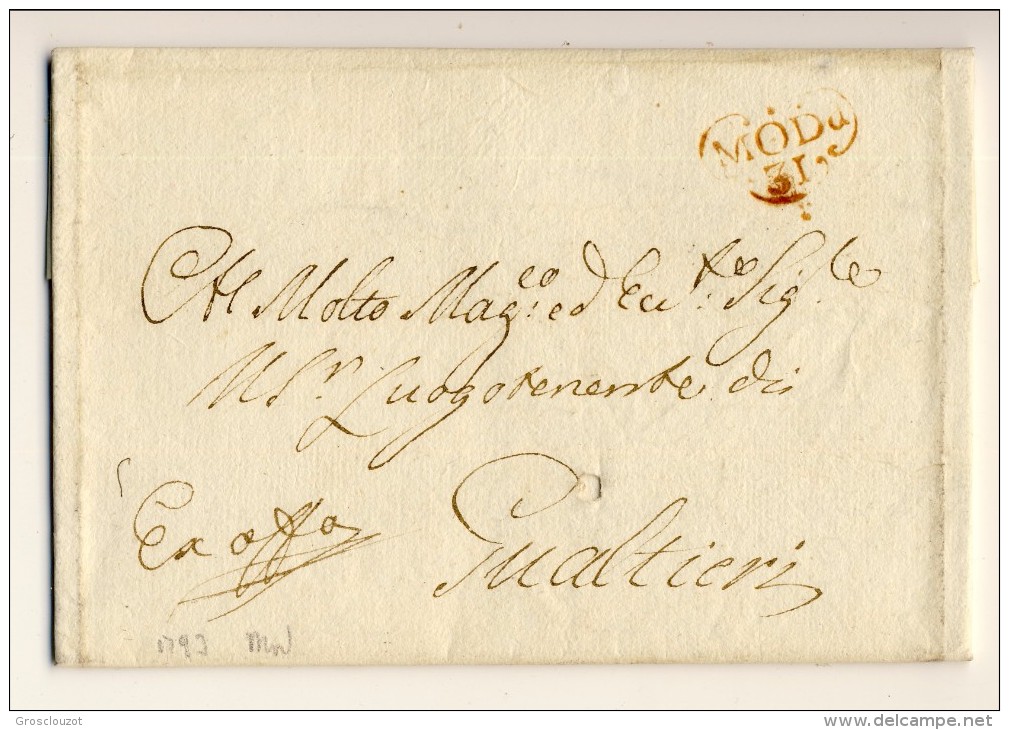 MODa
31
Al Molto Mag.co ed Ecc.te Sig.re
Il Sr. Luogotenente di
Ex offo
Gualtieri
1793
Grosclouzot
www.delcampe.net